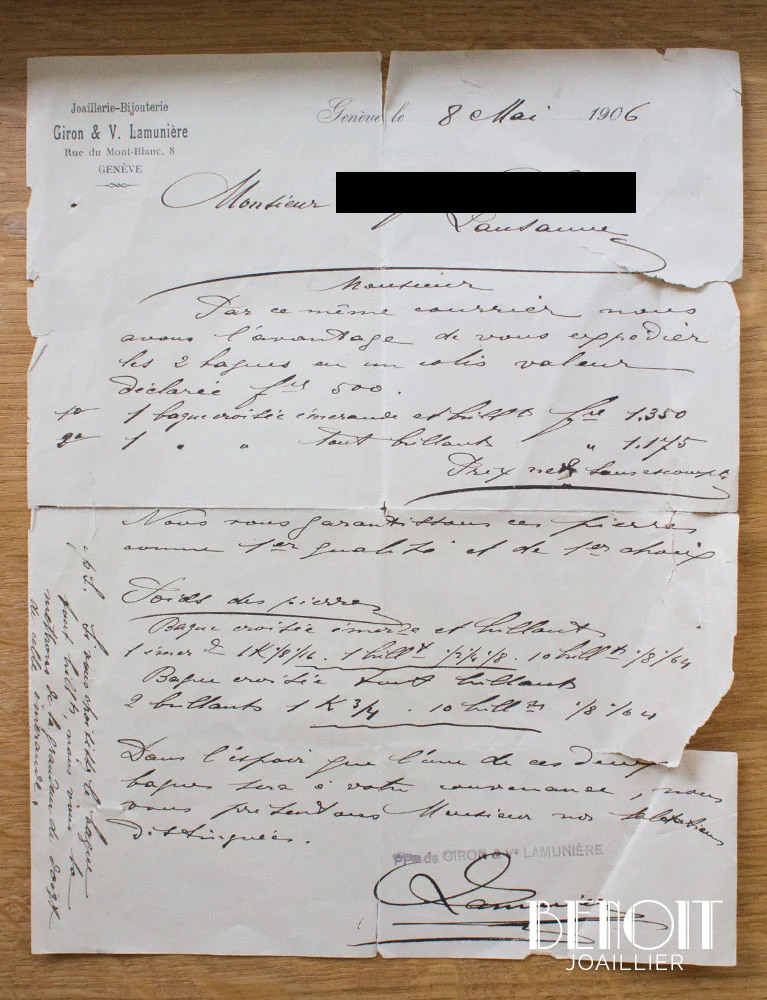 Joaillerie-Bijouterie
Giron & V. Lamunière
Rue du Mont-Blanc, 8
GENÈVE
Genève le 8 Mai 1906
Monsieur
Lausanne
Monsieur
Par ce même courrier nous
avons l'avantage de vous expédier
les 2 bagues en un colis valeur
déclarée frs 500.
1o 1 bague croisée émeraude et brillts frs 1.350
2o 1 " " tout brillants " 1.175
Prix nets sans escompte
Nous vous garantissons ces pierres
comme 1er qualité et de 1er choix
Poids des pierres
Bague croisée émerde et brillants
1 émerde 1K 1/8 1/16. 1 brillt 1/2 1/4 1/8. 10 brillts 1/8 1/64
Bague croisée tout brillants
2 brillants 1 K 3/4. 10 brillts 1/8 1/64
Dans l'espoir que l'une de ces deux
bagues sera à votre convenance, nous
vous présentons Monsieur nos salutations
distinguées.
de GIRON & Vr LAMUNIÈRE
Lamunière
P.S. Si vous choisissez la bague
tout brillts nous vous la
mettrons de la grandeur de doigt
de celle émeraude.
BENOIT
JOAILLIER